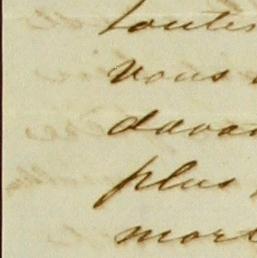 toutes
vous
davan
plus
mort